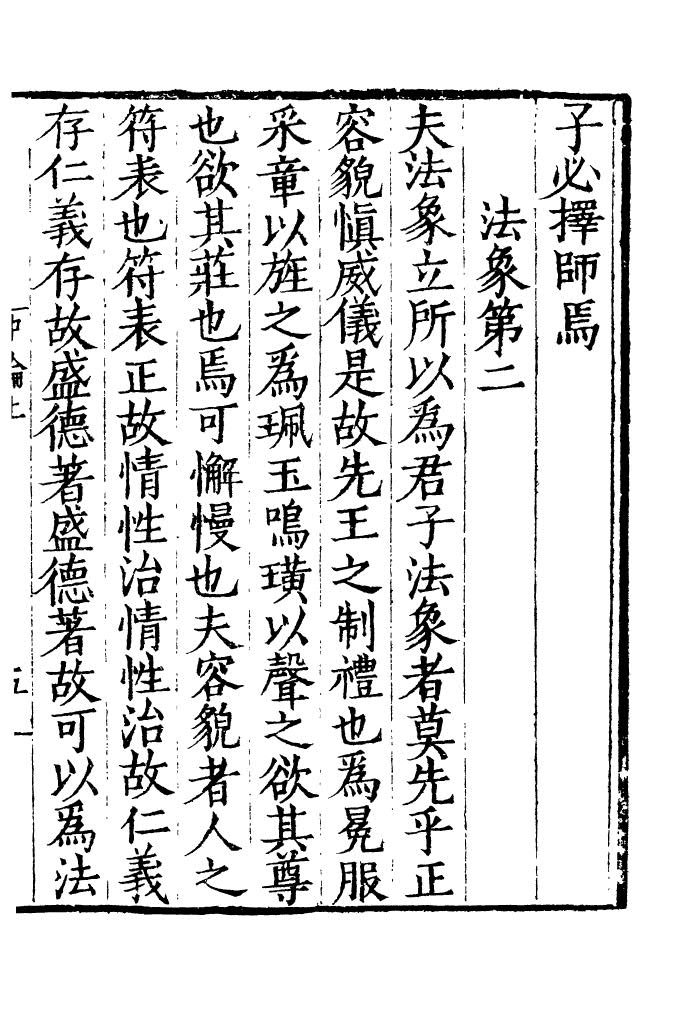 子必擇師焉
法象第二
夫法象立所以爲君子法象者莫先乎正
容貌愼威儀是故先王之制禮也爲冕服
采章以旌之爲珮玉鳴璜以聲之欲其尊
也欲其莊也焉可懈慢也夫容貌者人之
符表也符表正故情性治情性治故仁義
存仁義存故盛德著盛德著故可以爲法
中論上
五